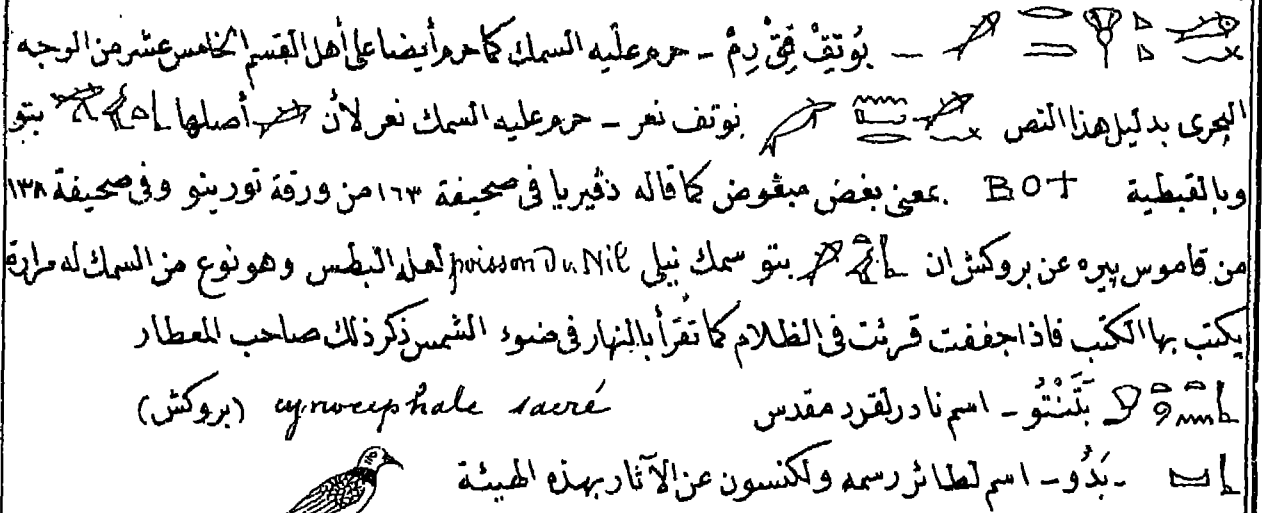 – بُوتِفْ فِقْ رِمْ – حرم عليه السمك كما حرم أيضا على أهل القسم الخامس عشر من الوجه
البحرى بدليل هذا النص نوتف نعر – حرم عليه السمك نعر لأن أصلها بتو
وبالقبطية BOT بمعنى بغض مبغوض كما قاله دفيريا فى صحيفة ١٦٣ من ورقة تورينو وفى صحيفة ١٣٨
من قاموس بيره عن بروكش ان بتو سمك نيلى poisson Du Nil لعله البطس وهو نوع من السمك له مرارة
يكتب بها الكتب فاذا جففت قرئت فى الظلام كما تقرأ بالنهار فى ضوء الشمس ذكر ذلك صاحب المعطار
بَتَنْتُو – اسم نادر لقرد مقدس cynocephale sacré (بروكش)
– بَدُو – اسم لطائر رسمه ولكنسون عن الآثار بهذه الهيئة